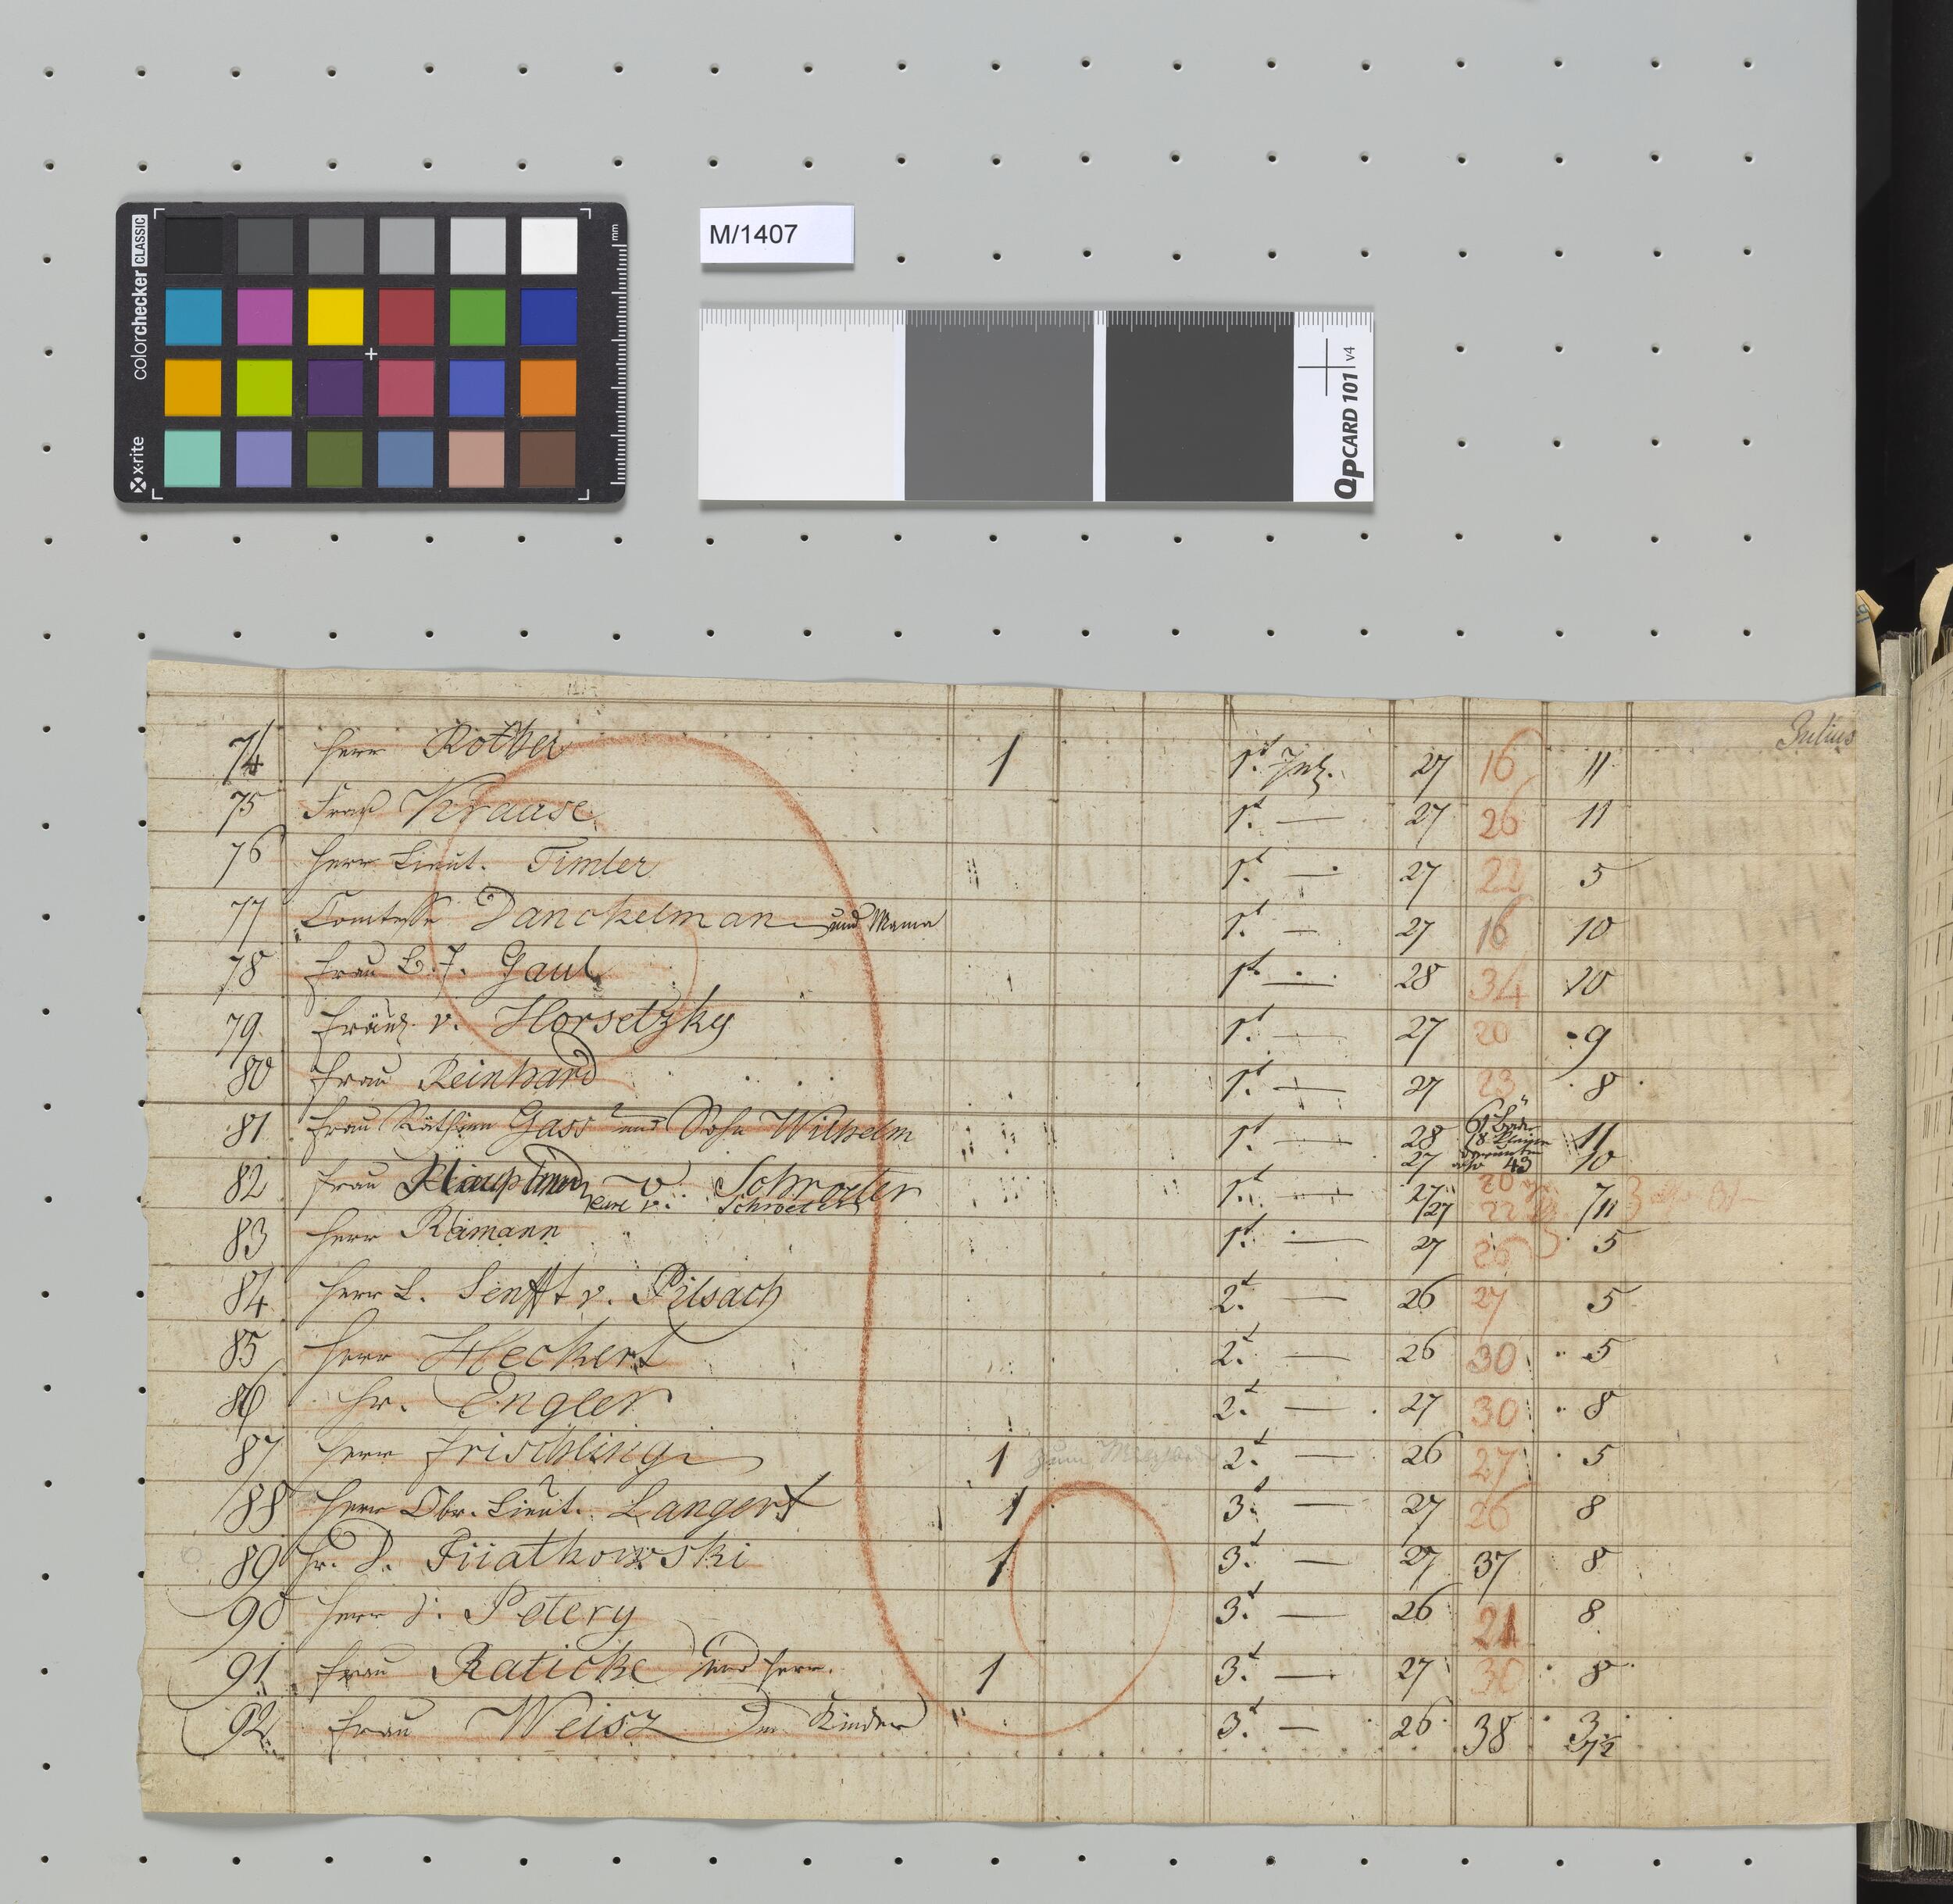 colorchecker CLASSIC
x-rite
mm
M/1407
QPCARD 101 v4
Julius
74 Herr Rother 1 1t July. 27 16 11
75 Frau Krause 1t — 27 26 11
76 Herr Lieut. Timler 1t — 27 22 5
77 Comtesse Danckelman und Mama 1t — 27 16 10
78 Frau Gaul 1t — 28 34 10
79. Fräul. v. Horsetzky 1t — 27 20 9
80 Frau Reinhard 1t — 27 23 8
81 Frau Räthinn Gass und Sohn Wilhelm 1t — 28 11
27 43 10
82 Frau v. Schroeter 1t — 27 20 7
v. Schroeter 27 22 11
83 Herr Reimann 1t — 27 26 5
84 Herr L. Senfft v. Pilsach 2t — 26 27 5
85 Herr Heckert 2t — 26 30 5
86 Hr. Engler 2t — 27 30 8
87 Herr Frischling 1 zum 2t — 26 27 5
88 Herr Obr. Lieut. Langert 1 3t — 27 26 8
89 Hr. D. 1 3t — 27 37 8
90 Herr v. Petery 3t — 26 21 8
91 Frau Raticke und Herr. 1 3t — 27 30 8
92 Frau Weisz Kinder 3t — 26 38 3